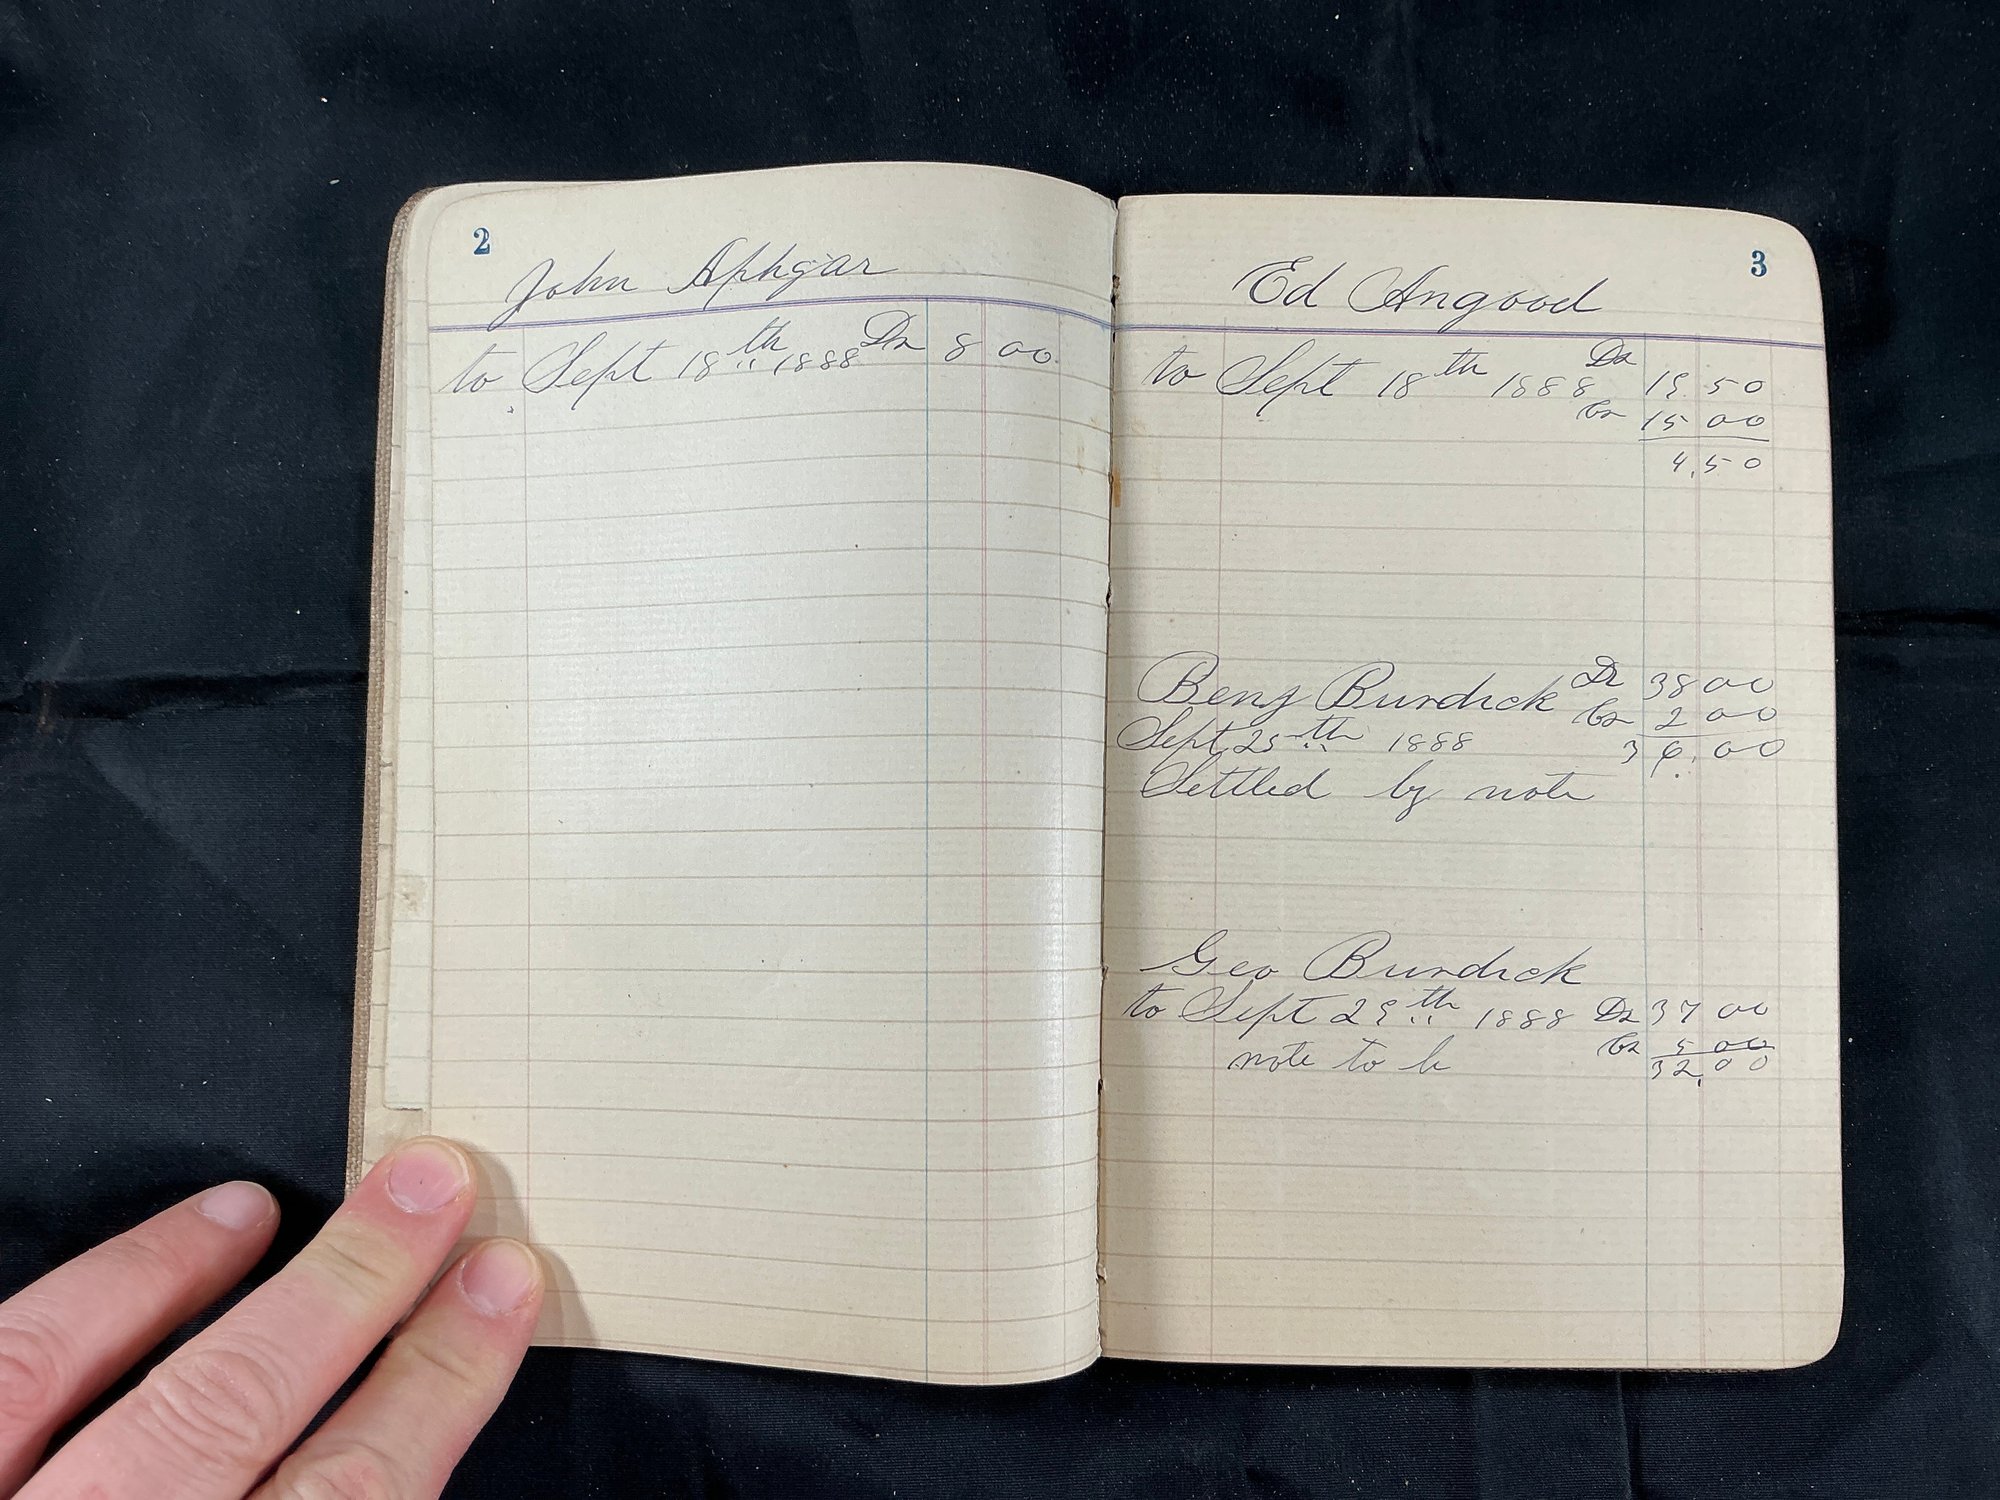 2
John Aphgar
to Sept 18th 1888 Dr 8 00
3
Ed Angood
to Sept 18th 1888 Dr 19.50
Cr 15 00
4.50
Benj Burdick Dr 38 00
Cr 2 00
Sept 25th 1888 36.00
Settled by note
Geo Burdick
to Sept 29th 1888 Dr 37 00
note to b Cr 5 00
32.00